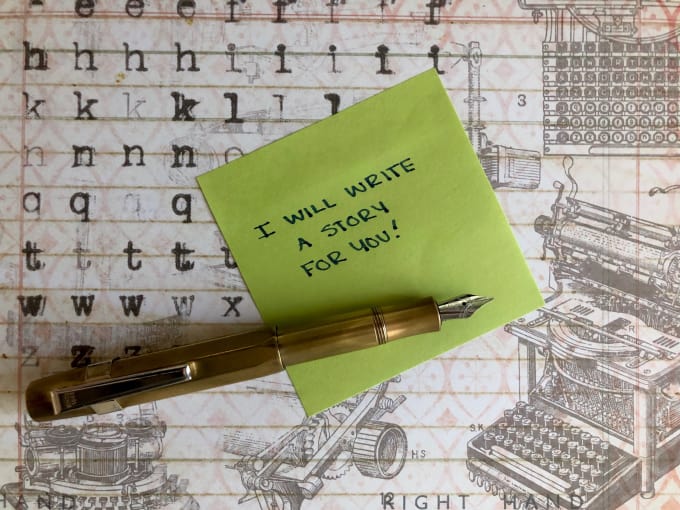 e e e f f f f f
h h h h i i i i i
k k k k l l l
n n n n
q q q
t t t t t
w w w w x
z z
3
I WILL WRITE
A STORY
FOR YOU!
S.K.
HS
HAND
RIGHT HAND